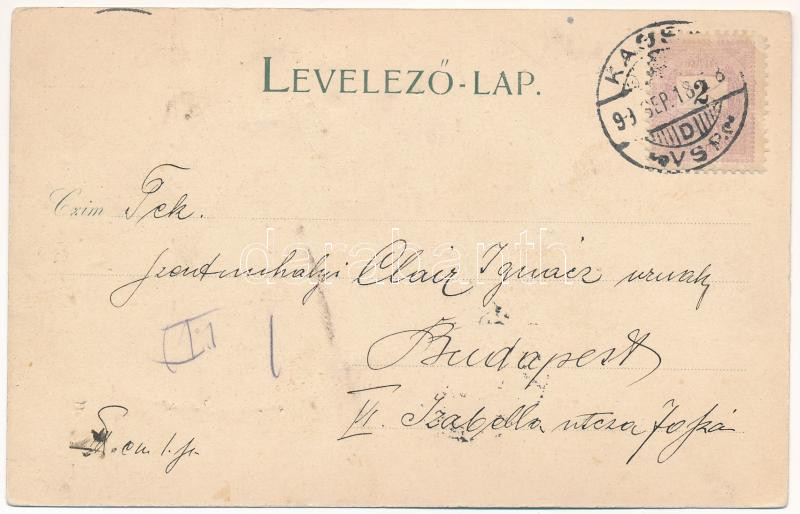 LEVELEZŐ-LAP.
KASSA
99 SEP. 18
D
2
VSP.
Czim Tek.
szentmihályi Clair Ignácz urnak
Budapest
VI. Izabella utcza
II. em 1.
darabanth